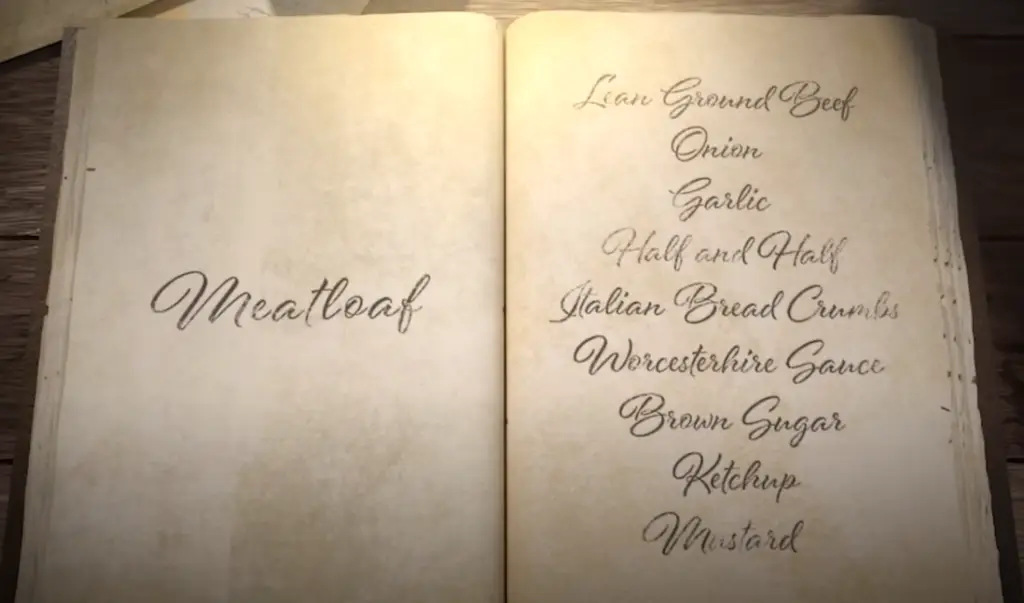 Meatloaf
Lean Ground Beef
Onion
Garlic
Half and Half
Italian Bread Crumbs
Worcesterhire Sauce
Brown Sugar
Ketchup
Mustard